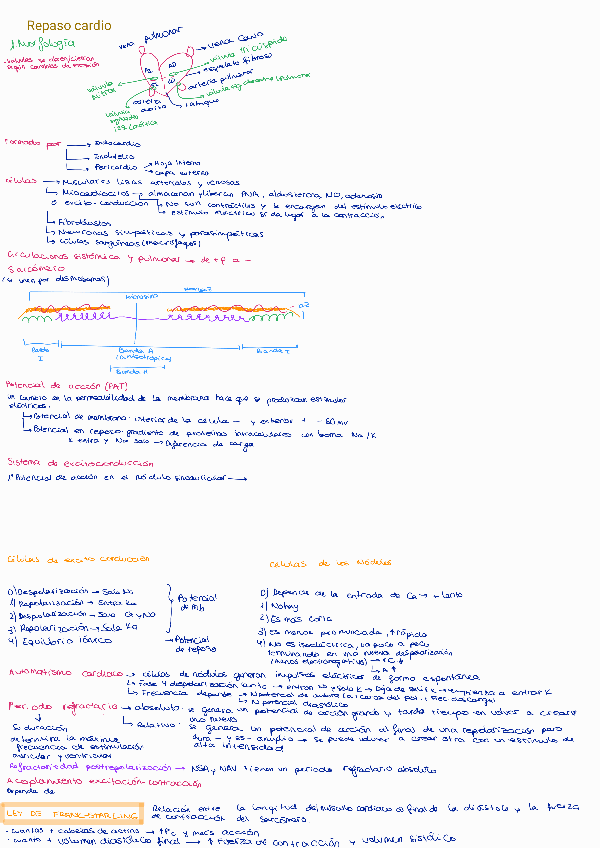 Repaso cardio
1. Morfología
vena pulmonar
vena cava
válvula tricúspide
esqueleto fibroso
arteria pulmonar
válvula mitral
arteria aorta
Formado por → Endocardio
Pericardio → Hoja interna
→ capa externa
Células → Musculares lisas arteriales y venosas
Miocardiocitos → almacenan y liberan PNA, aldosterona, NO, adenosin
o excito-conducción → No son contráctiles y se encargan del estímulo eléctrico
estímulo eléctrico se da lugar a la contracción
Fibroblastos
Neuronas simpáticas y parasimpáticas
Células sanguíneas (macrófagos)
Circulaciones sistémica y pulmonar → de +P a -
Sarcómero
(se unen por desmosomas)
Banda I
Banda A
(anisotrópica)
Banda I
Banda H
Potencial de acción (PAT)
un cambio en la permeabilidad de la membrana hace que se produzcan estímulos
eléctricos.
Potencial de membrana: interior de la célula - y exterior +
Potencial en reposo: gradiente de proteínas intracelulares con bomba Na/K
K entra y Na sale → Diferencia de carga
Sistema de excitoconducción
1º Potencial de acción en el nódulo sinoauricular →
Células de excito conducción
Células de los Nódulos
0) Despolarización → Sale Na
1) Repolarización → Entra Ka
2) Despolarización → Sale Ca y No
3) Repolarización → Sale Ka
4) Equilibrio iónico
Potencial
de Mb
Potencial
de reposo
0) Depende de la entrada de Ca → + lento
1) No hay
2) Es más corta
3) Es menos pronunciada, ↑ rápida
4) No es isoeléctrica, va poco a poco
terminando en una nueva despolarización
(menos electronegativo)
Automatismo cardíaco → células de nódulos generan impulsos eléctricos de forma espontánea
Fase 4 despolarización lenta
Frecuencia depende → N potencial de umbral
N potencial diastólico
Periodo refractario → absoluto: se genera un potencial de acción grande y tarda tiempo en volver a crear
uno nuevo
Relativo: se genera un potencial de acción al final de una repolarización pero
dura - y es - amplio → se puede volver a crear otra con un estímulo de
alta intensidad
Su duración
determina la máxima
frecuencia de estimulación
auricular y ventricular
Refractoriedad postrepolarización → NSA y NAV tienen un periodo refractario absoluto
Acoplamiento excitación-contracción
Depende de
LEY DE FRANK-STARLING
Relación entre la longitud del músculo cardíaco al final de la diástole y la fuerza
de contracción del sarcómero.
· cuantas + cabezas de actina → +Pc y más acción
· cuanto + volumen diastólico final → ↑ fuerza de contracción y volumen sistólico